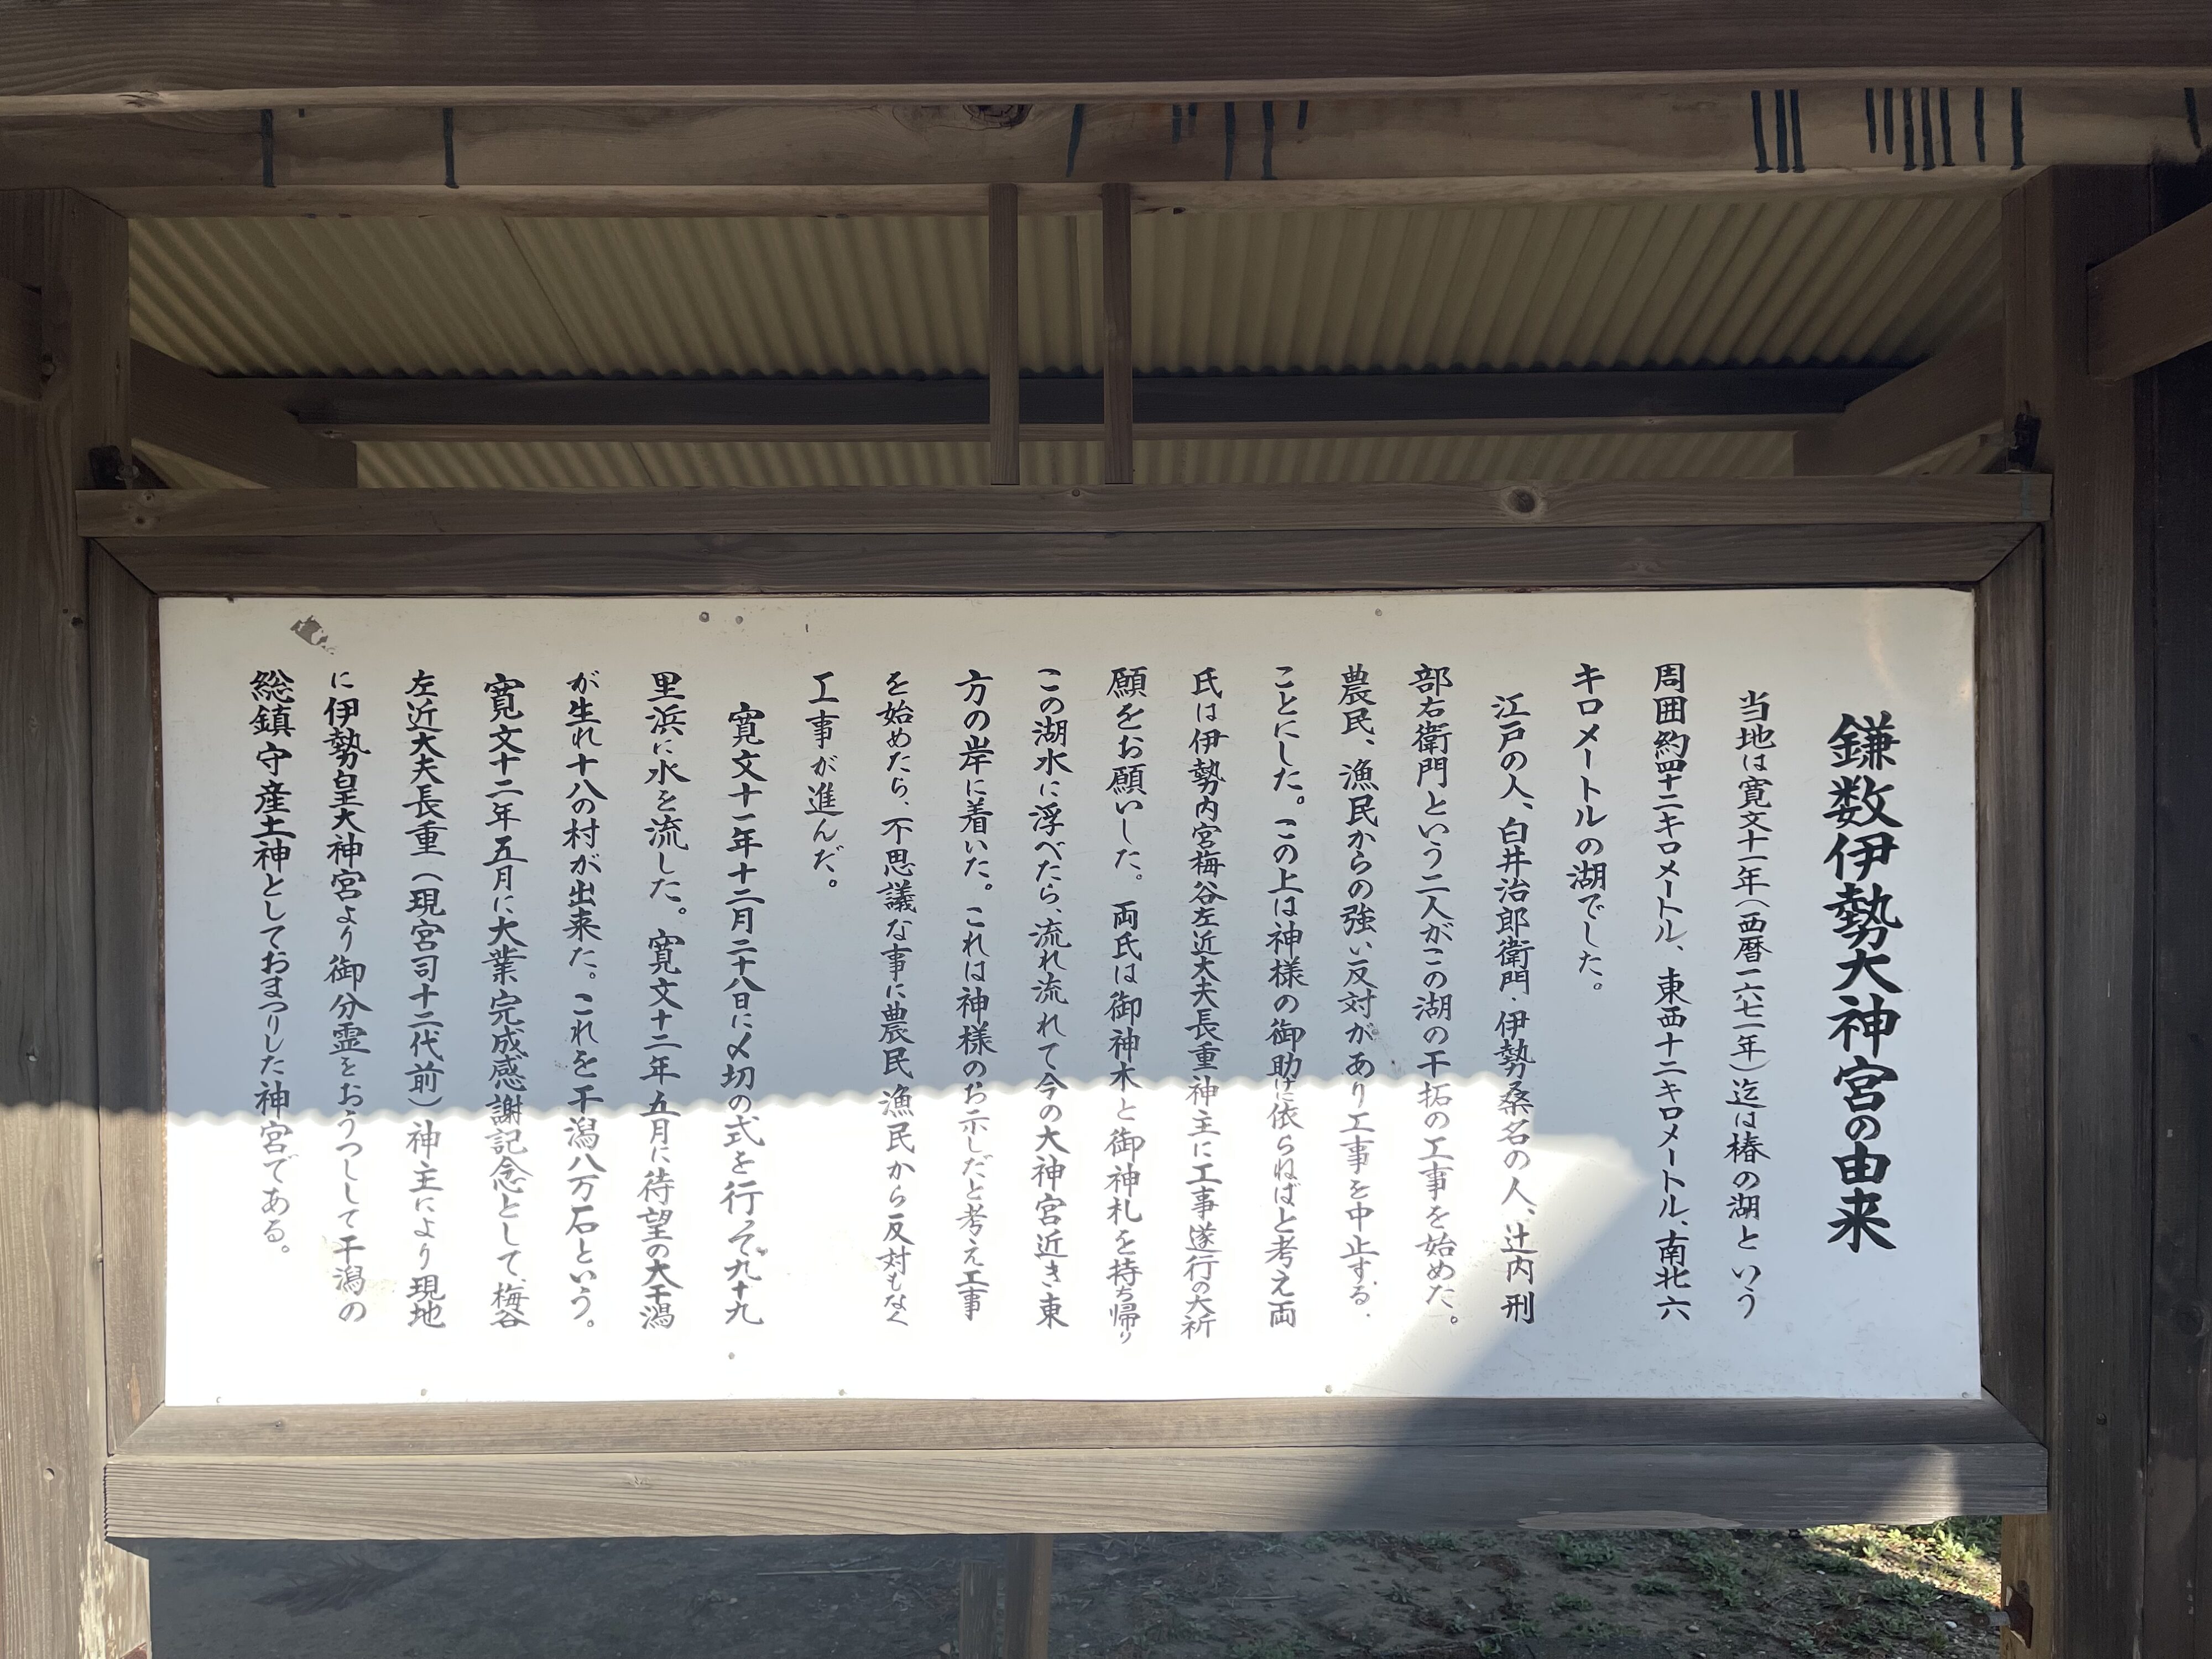 鎌数伊勢大神宮の由来
当地は寛文十一年(西暦一六七一年)迄は椿の湖という
周囲約四十二キロメートル、東西十二キロメートル、南北六
キロメートルの湖でした。
江戸の人、白井治郎衛門・伊勢桑名の人、辻内刑
部右衛門という二人がこの湖の干拓の工事を始めた。
農民、漁民からの強い反対があり工事を中止する
ことにした。この上は神様の御助けに依らねばと考え両
氏は伊勢内宮梅谷左近大夫長重神主に工事遂行の大祈
願をお願いした。両氏は御神木と御神札を持ち帰り
この湖水に浮べたら、流れ流れて今の大神宮近き東
方の岸に着いた。これは神様のお示しだと考え工事
を始めたら、不思議な事に農民漁民から反対もなく
工事が進んだ。
寛文十一年十二月二十八日に〆切の式を行って、九十九
里浜に水を流した。寛文十二年五月に待望の大干潟
が生れ十八の村が出来た。これを干潟八万石という。
寛文十二年五月に大業完成感謝記念として、梅谷
左近大夫長重(現宮司十二代前)神主により現地
に伊勢皇大神宮より御分霊をおうつしして干潟の
総鎮守産土神としておまつりした神宮である。